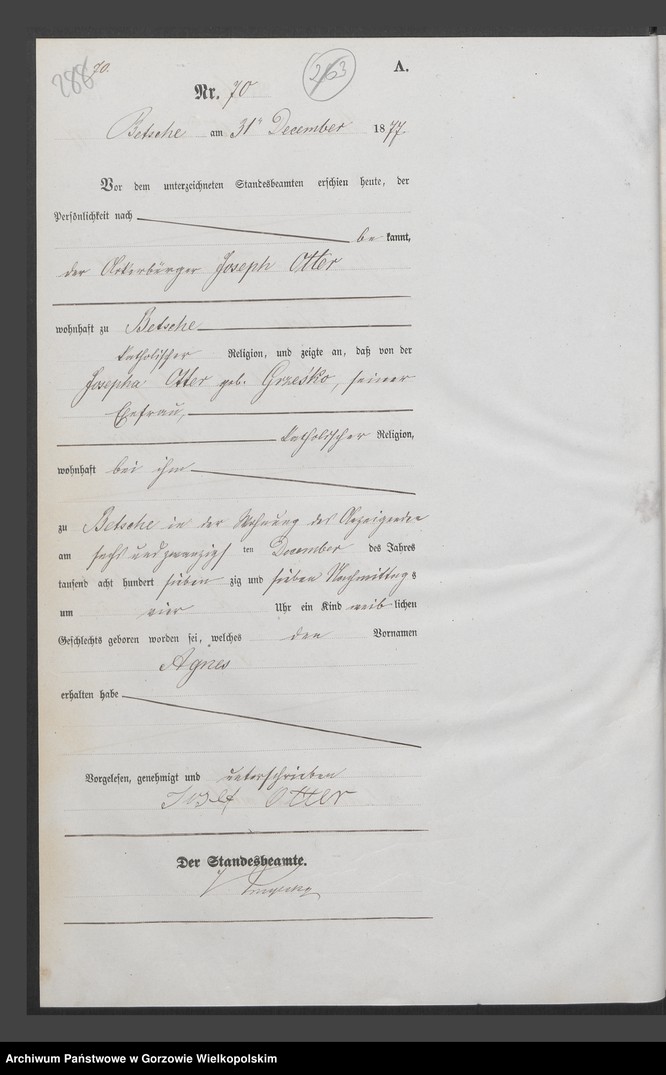 288 70.
263
A.
Nr. 70
Betsche am 31ⁿ December 1877.
Vor dem unterzeichneten Standesbeamten erschien heute, der
Persönlichkeit nach
be kannt,
der Ackerbürger Joseph Otter
wohnhaft zu Betsche
katholischer Religion, und zeigte an, daß von der
Josepha Otter geb. Grześko, seiner
Ehefrau,
katholischer Religion,
wohnhaft bei ihm
zu Betsche in der Wohnung des Anzeigenden
am sechs und zwanzigs ten December des Jahres
tausend acht hundert sieben zig und sieben Nachmittags
um vier Uhr ein Kind weib lichen
Geschlechts geboren worden sei, welches den Vornamen
Agnes
erhalten habe
Vorgelesen, genehmigt und unterschrieben
Josef Otter
Der Standesbeamte.
Archiwum Państwowe w Gorzowie Wielkopolskim